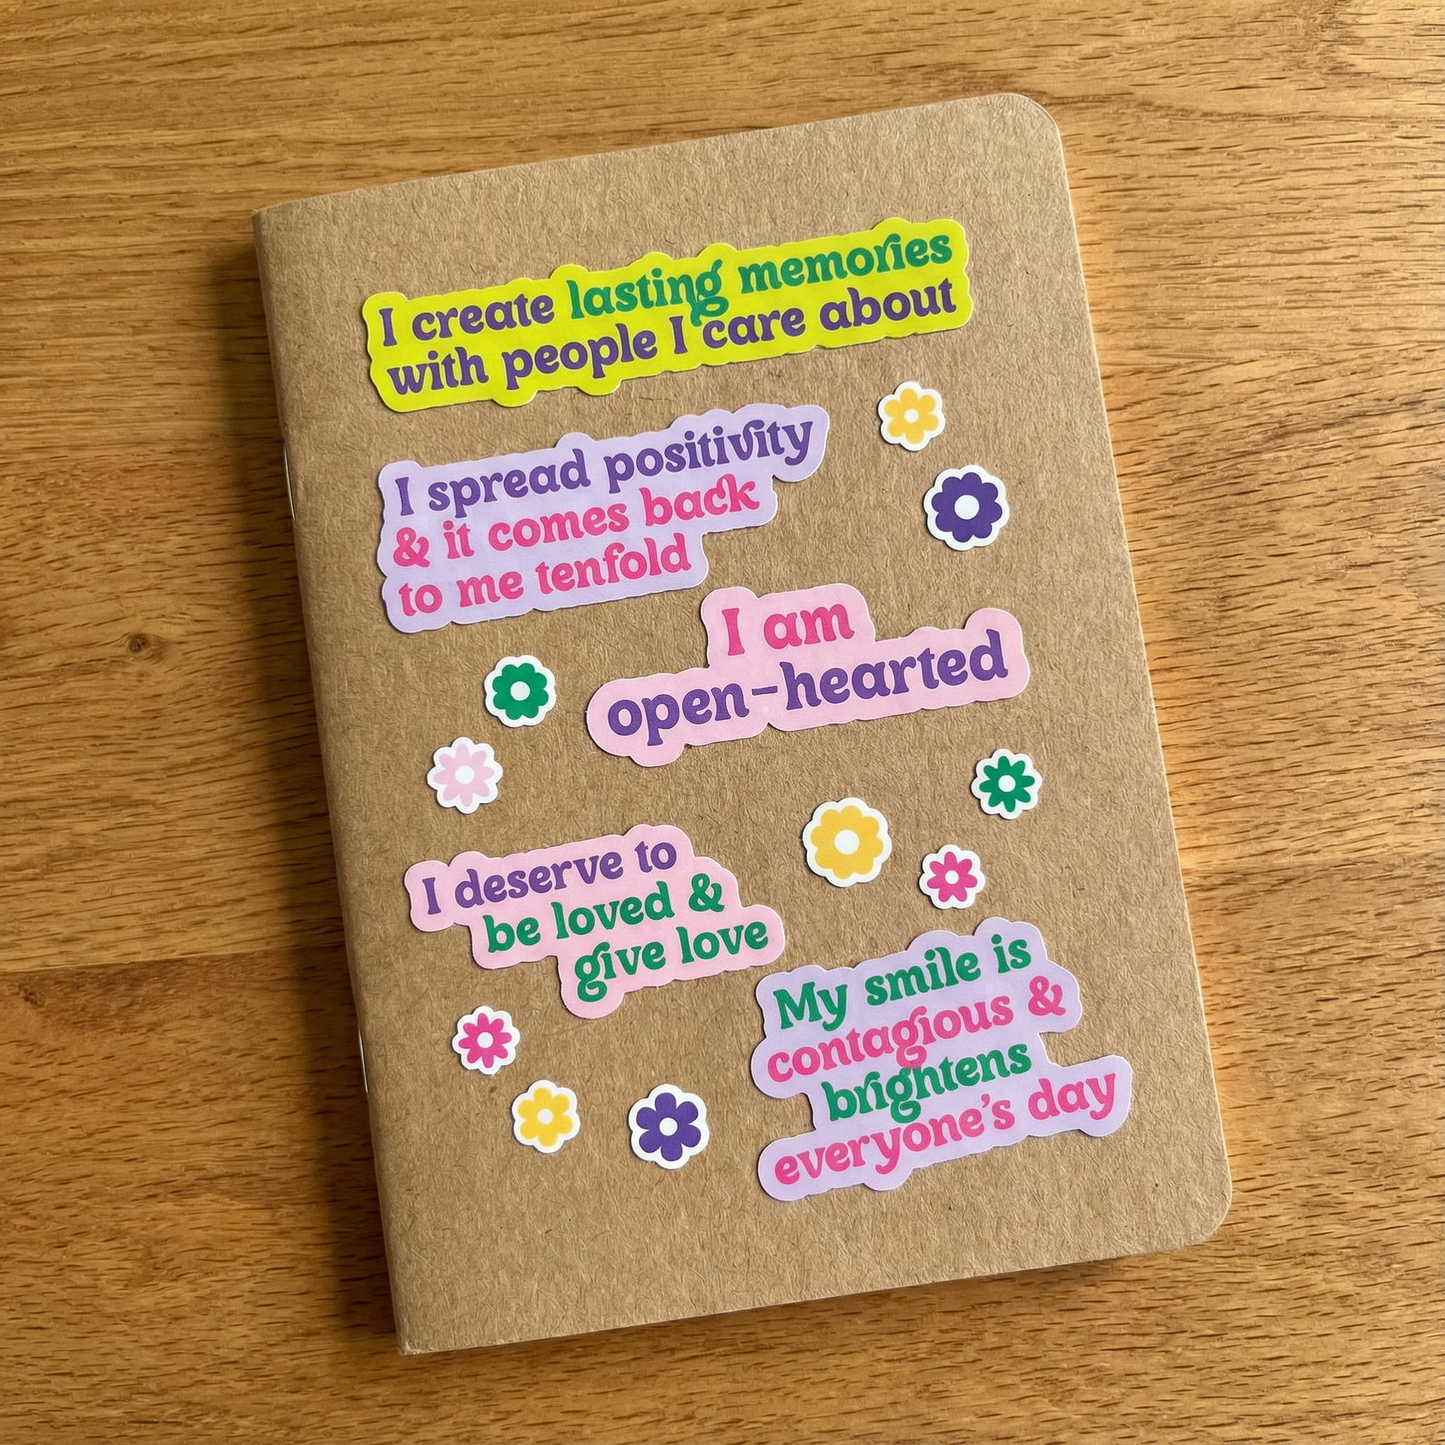 I create lasting memories
with people I care about
I spread positivity
& it comes back
to me tenfold
I am
open-hearted
I deserve to
be loved &
give love
My smile is
contagious &
brightens
everyone's day